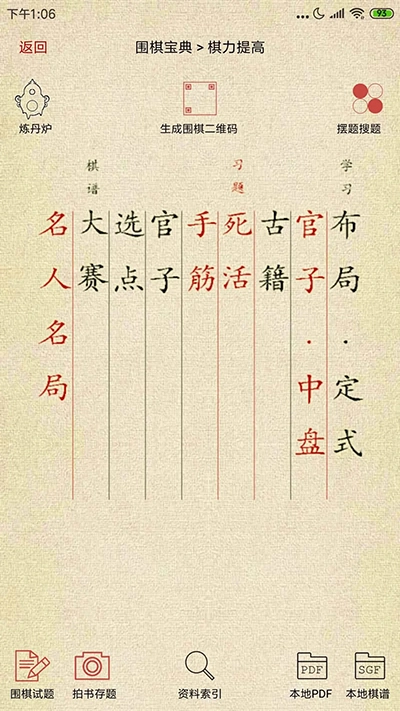 下午1:06
93
返回
围棋宝典 > 棋力提高
炼丹炉
生成围棋二维码
摆题搜题
学习
布局·定式
官子·中盘
古籍
习题
死活
手筋
官子
选点
棋谱
大赛
名人名局
围棋试题
拍书存题
资料索引
PDF
本地PDF
SGF
本地棋谱